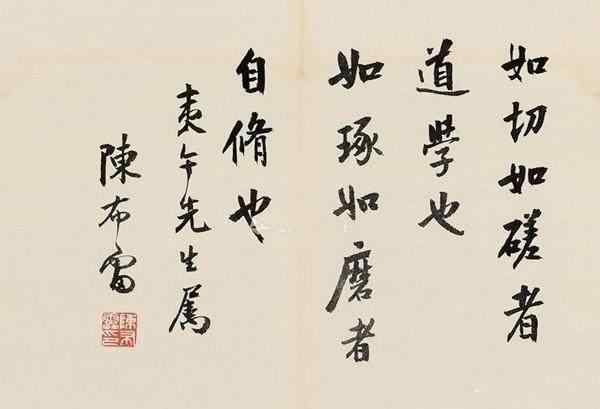 如切如磋者
道學也
如琢如磨者
自脩也
夷午先生屬
陳布雷
陳布雷印